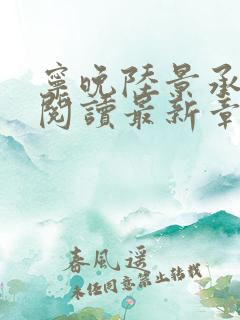 寧晚陸景承
閱讀最新章
春風遥
未經同意禁止轉載